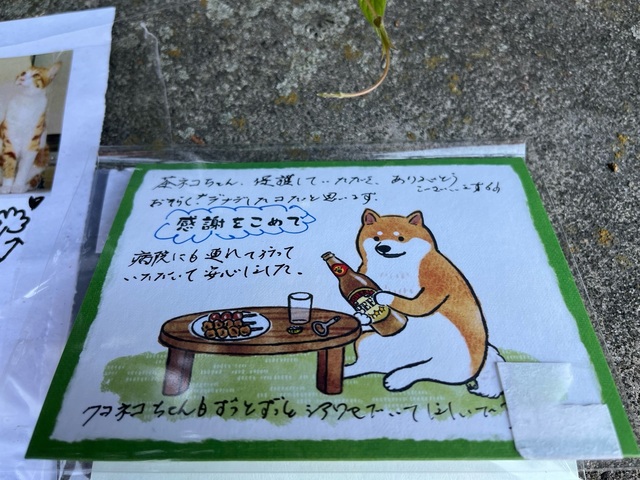 茶ネコちゃん、保護していただき、ありがとう
ございます
おそらく
したコだと思います。
感謝をこめて
病院にも連れて行って
いただいて安心しました。
フコネコちゃんもずっとずっとシアワセでいてほしいです